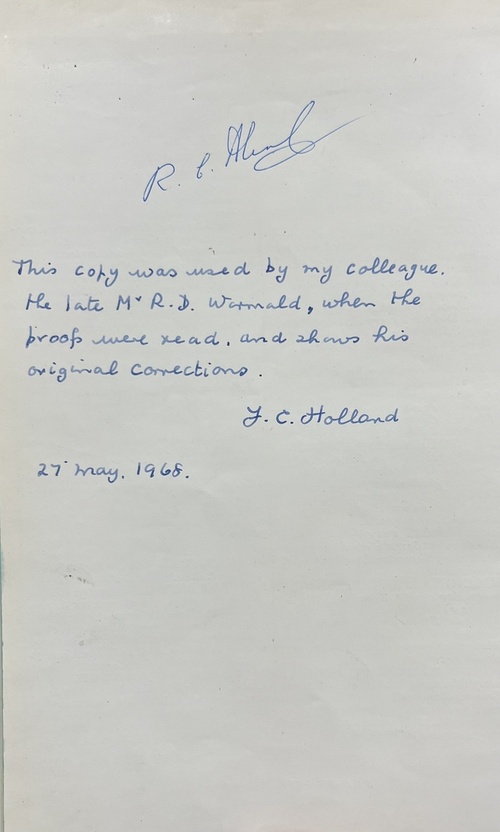 R. C.
This copy was used by my colleague.
the late Mr R.D. Wormald, when the
proofs were read, and shows his
original corrections.
J. C. Holland
27 May, 1968.